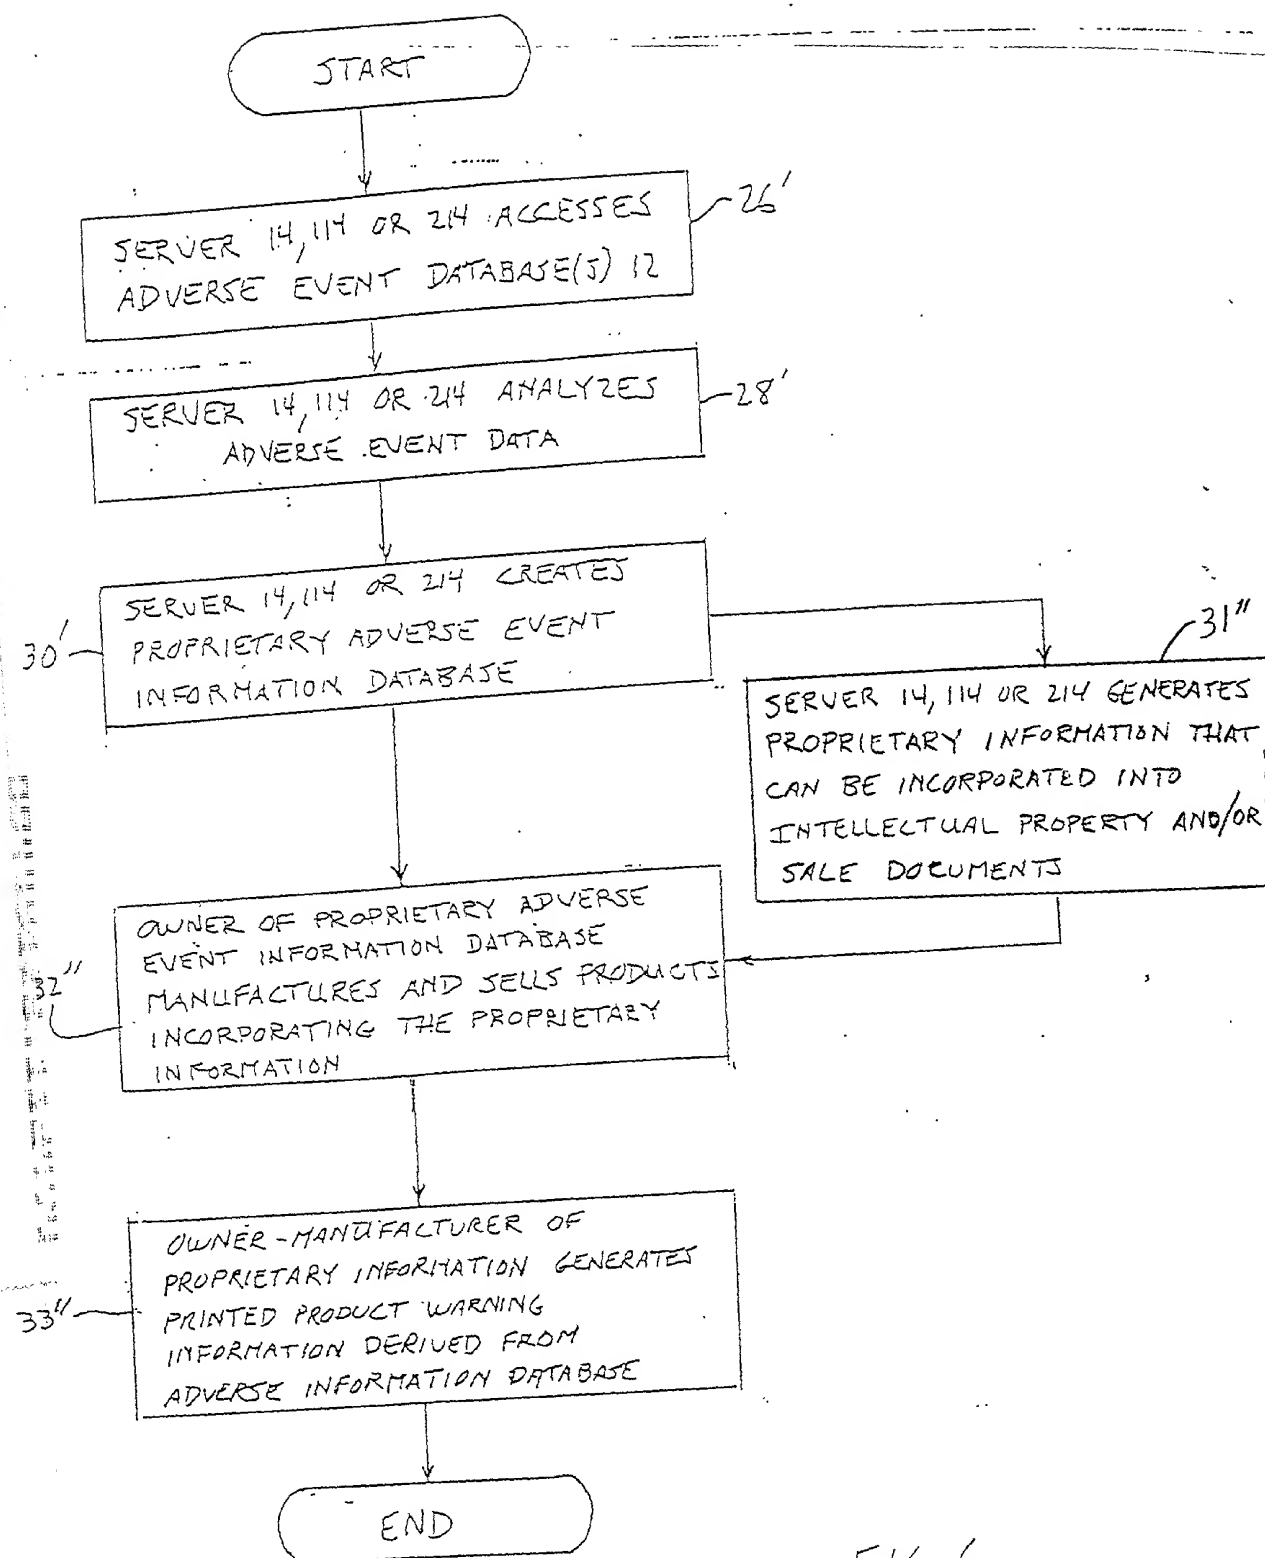 START
SERVER 14, 114 OR 214 ACCESSES
ADVERSE EVENT DATABASE(S) 12
26'
SERVER 14, 114 OR 214 ANALYZES
ADVERSE EVENT DATA
28'
SERVER 14, 114 OR 214 CREATES
PROPRIETARY ADVERSE EVENT
INFORMATION DATABASE
30'
31"
SERVER 14, 114 OR 214 GENERATES
PROPRIETARY INFORMATION THAT
CAN BE INCORPORATED INTO
INTELLECTUAL PROPERTY AND/OR
SALE DOCUMENTS
OWNER OF PROPRIETARY ADVERSE
EVENT INFORMATION DATABASE
MANUFACTURES AND SELLS PRODUCTS
INCORPORATING THE PROPRIETARY
INFORMATION
32"
OWNER-MANUFACTURER OF
PROPRIETARY INFORMATION GENERATES
PRINTED PRODUCT WARNING
INFORMATION DERIVED FROM
ADVERSE INFORMATION DATABASE
33"
END